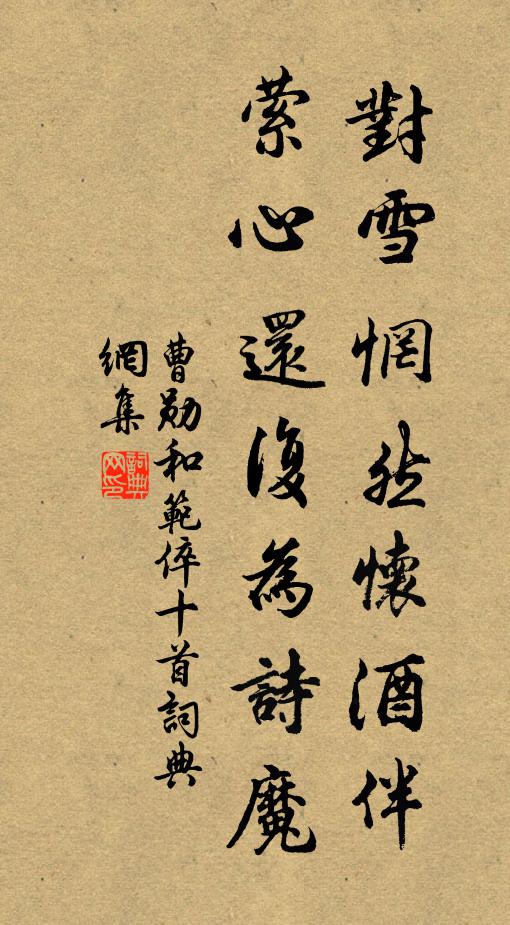 對雪惘然懷酒伴
縈心還復為詩魔
曹勛和範倅十首詞典
網集
詞典
网印